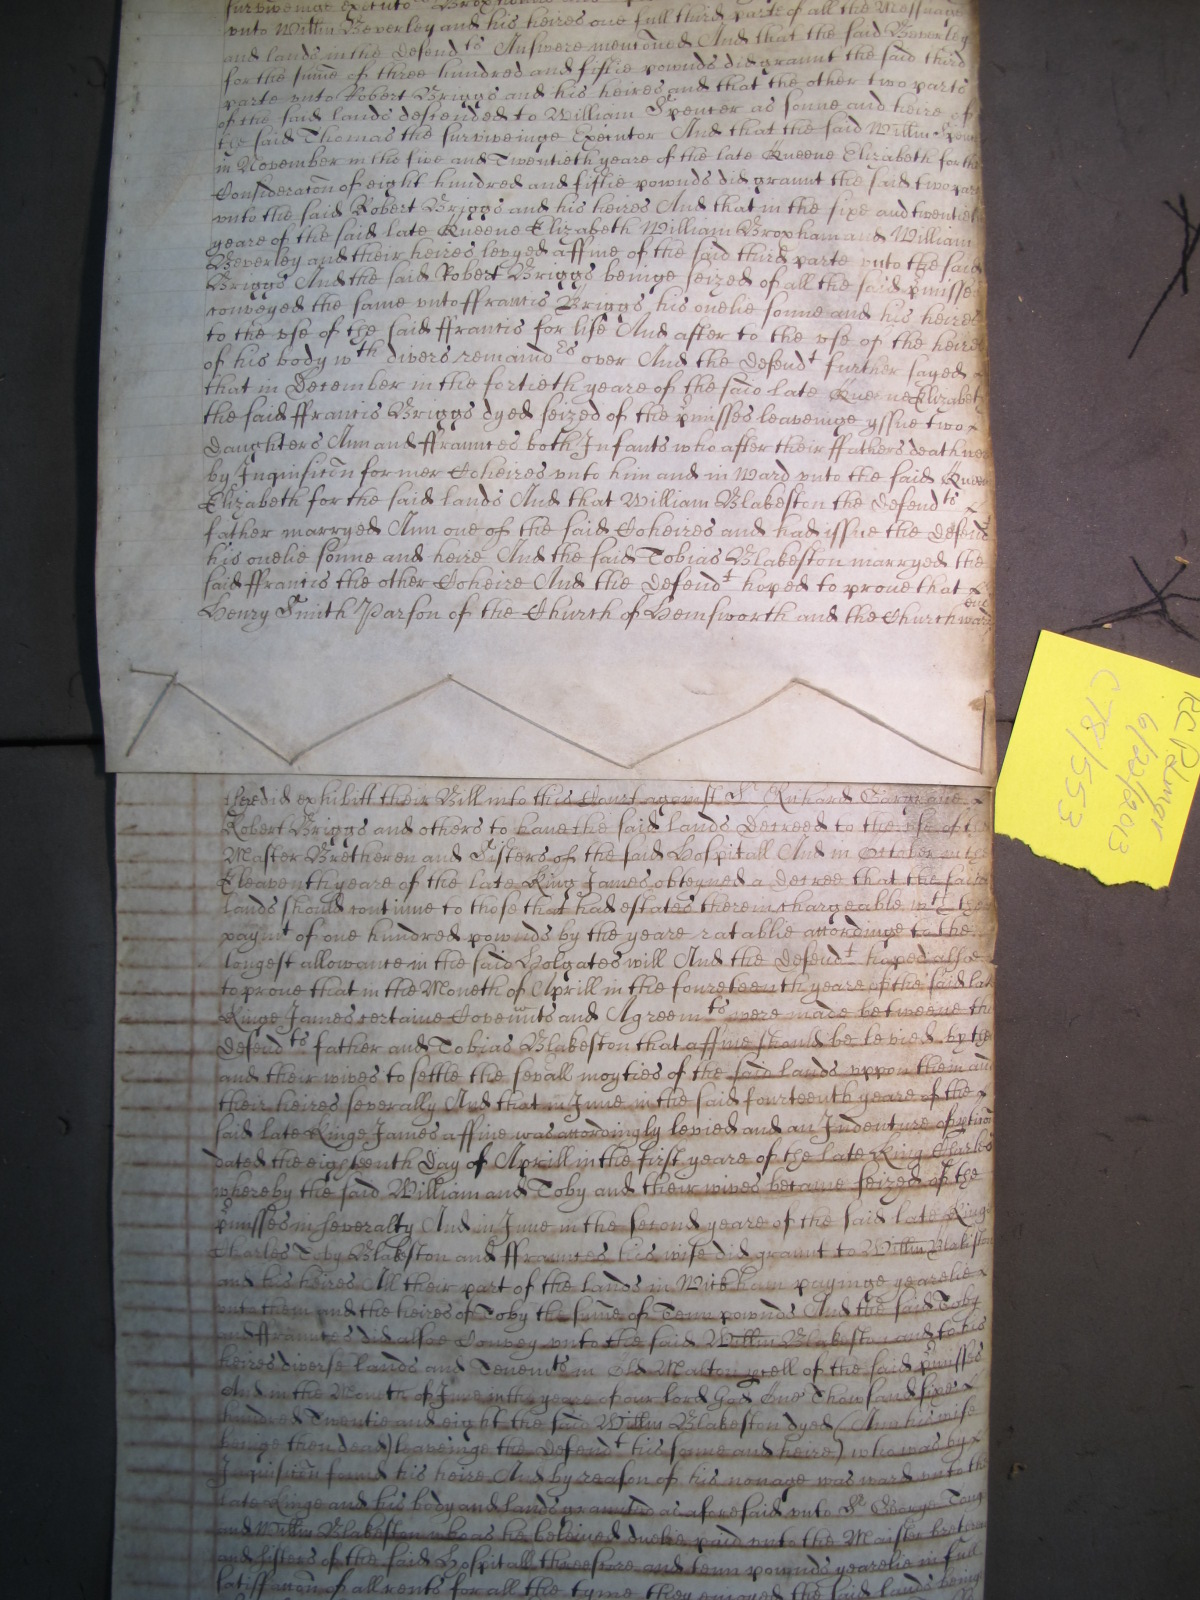 vnto Willm Beverley and his heires one full third parte of all the Messuag
and lands in the Defend^ts Answere mentoned And that the said Beverley
for the sume of three hundred and fiftie pownds did graunt the said third
parte vnto Robert Briggs and his heires and that the other two parts
of the said lands descended to William Spencer as sonne and heire of
the said Thomas the surviveinge Executor And that the said Willm Spen
in November in the five and Twentieth yeare of the late Queene Elizabeth for the
Consideracon of eight hundred and fiftie pownds did graunt the said two par
vnto the said Robert Briggs and his heires And that in the sixe and twentiet
yeare of the said late Queene Elizabeth William Broxham and William
Beverley and their heires levyed a ffine of the said third parte vnto the said
Briggs And the said Robert Briggs beinge seized of all the said pmisses
conveyed the same vnto ffrancis Briggs his onelie sonne and his heires
to the vse of the said ffrancis for life And after to the vse of the heires
of his body w^th divers remaind^es over And the Defend^t further sayed
that in December in the fortieth yeare of the said late Queene Elizabeth
the said ffrancis Briggs dyed seized of the pmisses leaveinge yssue two
Daughters Ann and ffraunces both Infants who after their ffathers death we
by Inquisicon former Coheires vnto him and in Ward vnto the said Quee
Elizabeth for the said lands And that William Blakeston the Defend^ts
father marryed Ann one of the said Coheires and had issue the Defend^t
his onelie sonne and heire And the said Tobias Blakeston marryed the
said ffrancis the other Coheire And the Defend^t hoped to prove that
Henry Smith Parson of the Church of Hemsworth and the Churchward
there did exhibitt their Bill into this Court against S^r Richard Gargrave
Robert Briggs and others to have the said lands Decreed to the vse of the
Master Bretheren and Sisters of the said Hospitall And in October in the
Eleaventh yeare of the late King James obteyned a Decree that the said
lands should continue to those that had estates therein chargeable w^th the
paym^t of one hundred pownds by the yeare ratablie accordinge to the
longest allowance in the said Holgates will And the Defend^t hoped alsoe
to prove that in the Moneth of Aprill in the fourteenth yeare of the said late
Kinge James certaine Coven^nts and Agreem^ts were made betweene the
Defend^ts father and Tobias Blakeston that a ffine should be levied by them
and their wives to settle the sevall moyties of the said lands vppon them and
their heires severally And that in June in the said fourteenth yeare of the
said late Kinge James a ffine was accordingly levied and an Indenture of
dated the eighteenth Day of Aprill in the first yeare of the late King Charles
whereby the said William and Toby and their wives became seized of the
pmisses in severalty And in June in the second yeare of the said late Kinge
Charles Toby Blakeston and ffraunces his wife did graunt to Willm Blakiston
and his heires All their part of the lands in Wickham payinge yearelie
vnto them and the heires of Toby the sume of Tenn pownds And the said Toby
and ffraunces did alsoe Convey vnto the said Willm Blakeston and to his
heires diverse lands and Tenem^ts in Old Malton pcell of the said pmisses
And in the Moneth of June in the yeare of our lord God One Thowsand sixe
hundred Twentie and eight the said Willm Blakeston dyed (Ann his wife
beinge then dead) leaveinge the Defend^t his sonne and heire) who was by
Inquisicon found his heire And by reason of his nonage was ward vnto the
late Kinge and his body and lands graunted as aforesaid vnto S^r George Tong
and Willm Blakeston who as he beleived duelie paid vnto the Maister brethren
and sisters of the said Hospitall threescore and tenn pownds yearelie in full
satisfaccon of all rents for all the tyme they enioyed the said lands beinge
RC Palmer
6/22/2013
C78/553